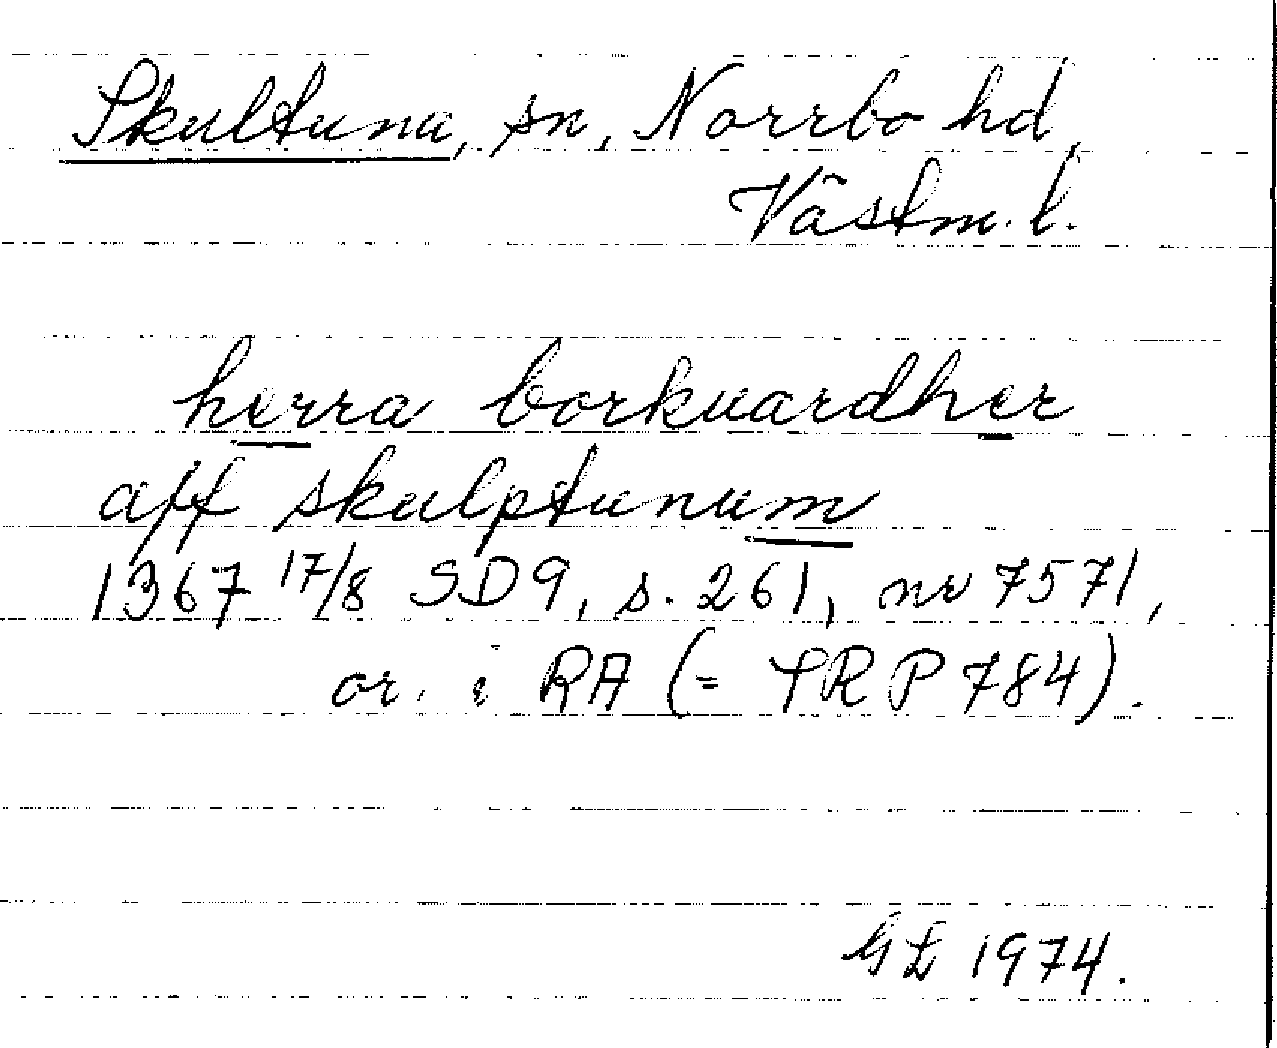 Skultuna, sn, Norrbo hd,
Västm. l.
herra borkuardher
aff skulptunum
1367 17/8 SD9, s. 261, nr 7571,
or. i RA (= SRP 784).
GL 1974.